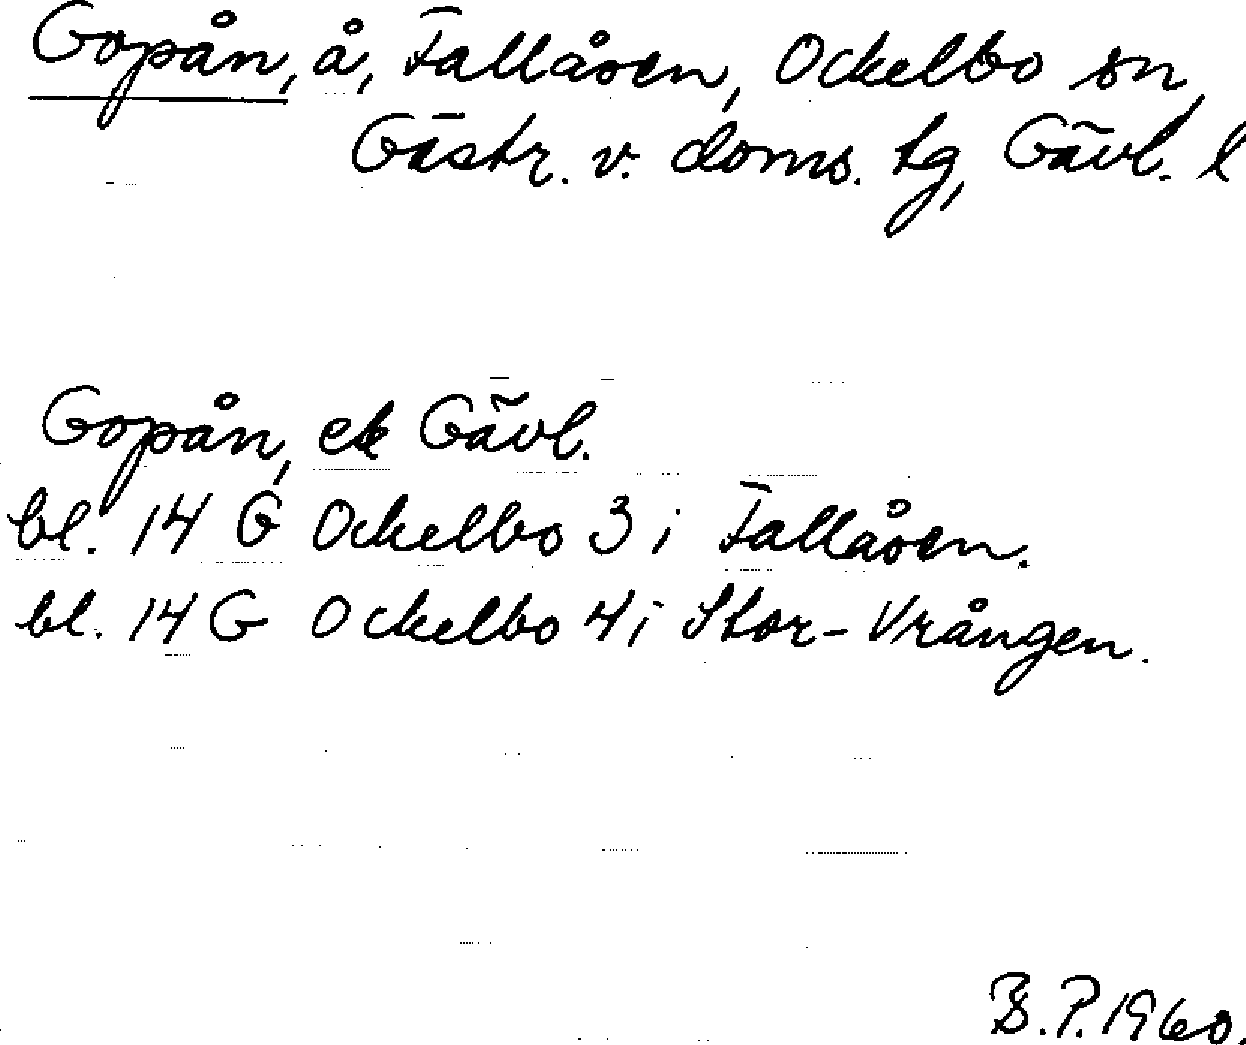 Gopån, å, Fallåsen, Ockelbo sn,
Gästr. v. doms. tg, Gävl. l
Gopån, ek Gävl.
bl. 14 G Ockelbo 3 i Fallåsen.
bl. 14 G Ockelbo 4 i Stor-Vrången.
B.P. 1960.